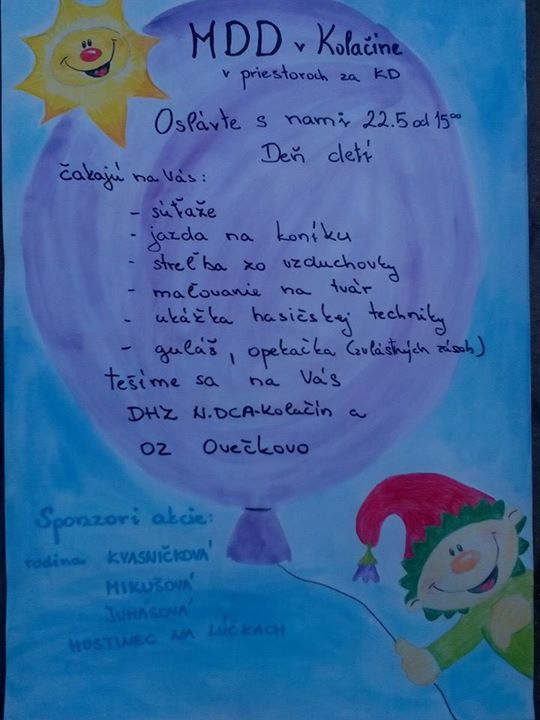 MDD v Kolačíne
v priestoroch za KD
Oslávte s nami 22.5 od 15⁰⁰
Deň detí
čakajú na Vás:
- súťaže
- jazda na koníku
- streľba zo vzduchovky
- maľovanie na tvár
- ukážka hasičskej techniky
- guláš, opekačka (zvlastných zásob)
tešíme sa na Vás
DHZ N.DCA-Kolačín a
OZ Ovečkovo
Sponzori akcie:
rodina KVASNIČKOVÁ
MIKUŠOVÁ
JUHÁSOVÁ
HOSTINEC NA LÚČKACH